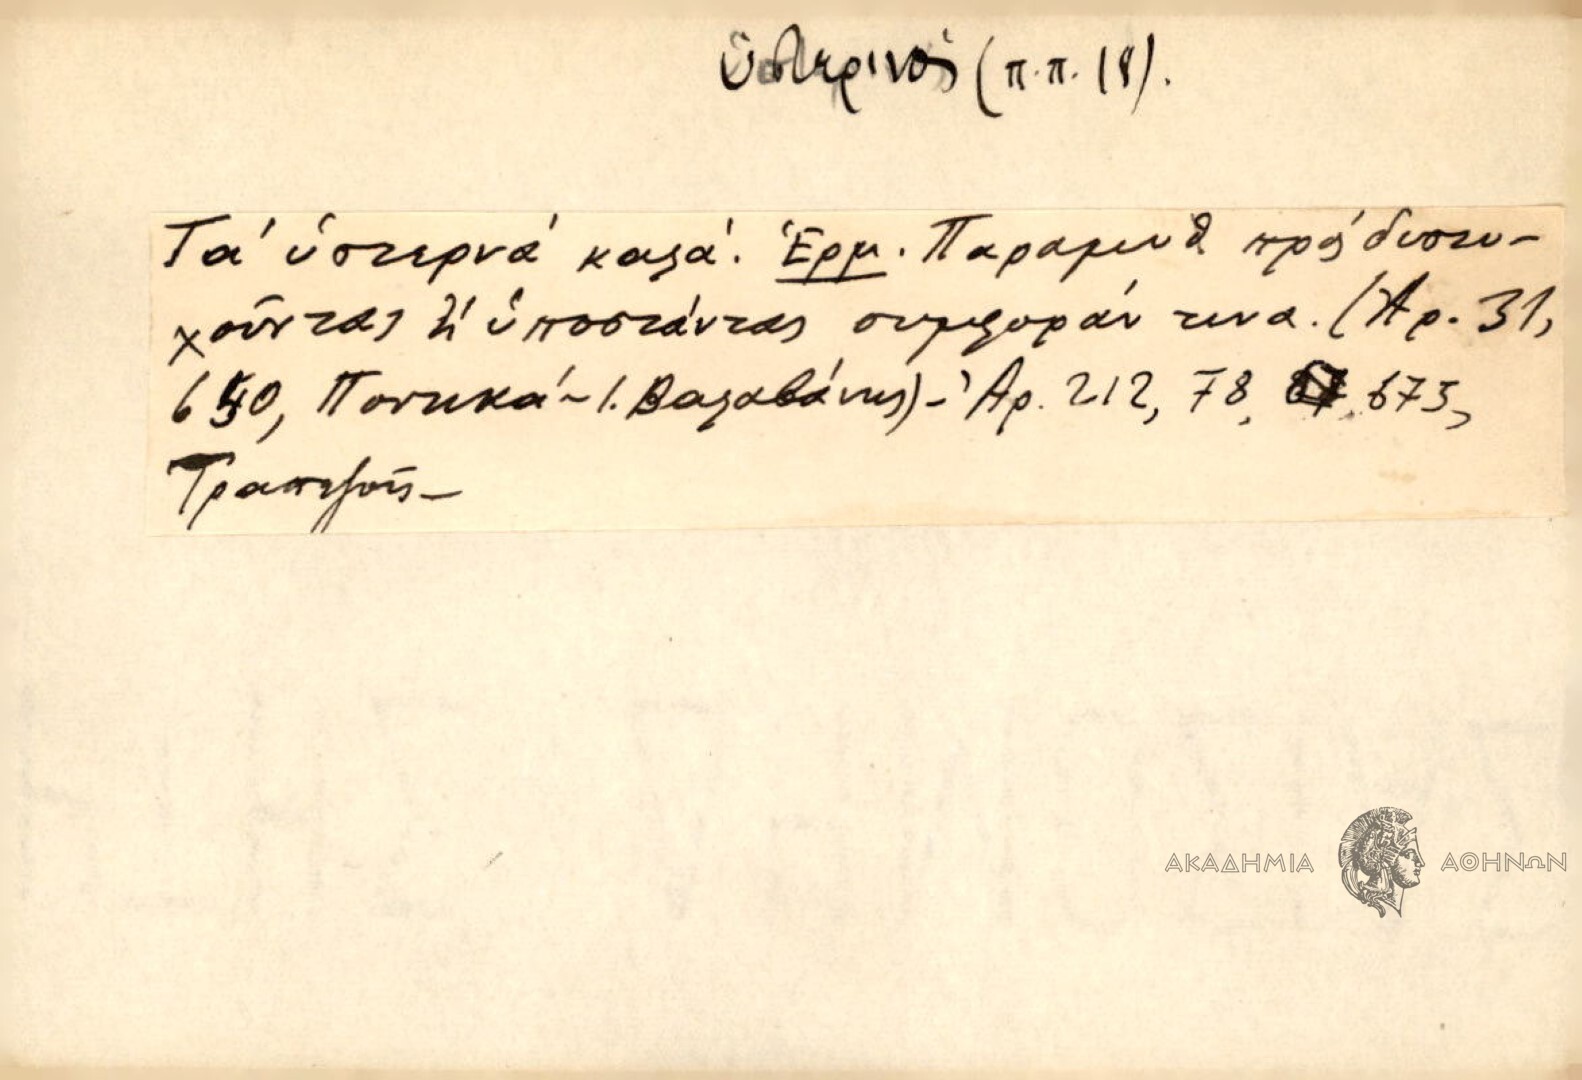 ὑστερινός (π.π. 18).
Τά ὑστερνά καλά. Ἑρμ. Παραμυθ πρός δυστυ-
χοῦντας ἤ ὑποστάντας συμφοράν τινα. (Ἀρ. 31,
650, Ποντικά - Ι. Βαλαβάνης) - Ἀρ. 212, 78, 673,
Τραπεζοῦς -
ΑΚΑΔΗΜΙΑ ΑΘΗΝΩΝ